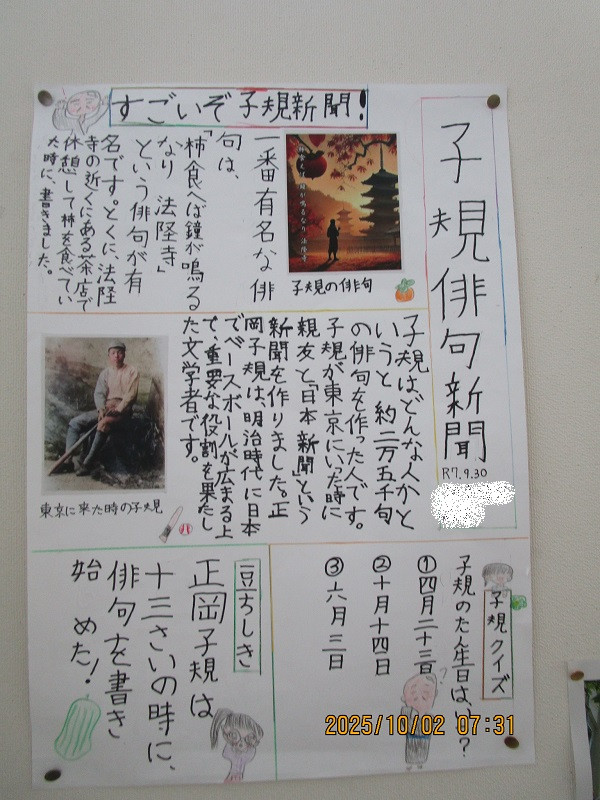 子規俳句新聞
R7.9.30
すごいぞ子規新聞！
一番有名な俳
句は、
「柿食へば鐘が鳴る
なり 法隆寺」
という俳句が有
名です。とくに、法隆
寺の近くにある茶店で
休憩して柿を食べてい
た時に、書きました。
柿食えば 鐘が鳴るなり 法隆寺
子規の俳句
子規はどんな人かと
いうと 約二万五千句
の俳句を作った人です。
子規が東京にいった時に
親友と「日本新聞」という
新聞を作りました。正
岡子規は、明治時代に日本
でベースボールが広まる上
で、重要な役割を果たし
た文学者です。
東京に来た時の子規
子規クイズ
子規のた人生日は、？
①四月二十三日
②十月十四日
③六月三日
豆ちしき
正岡子規は
十三さいの時に、
俳句を書き
始めた！
2025/10/02 07:31